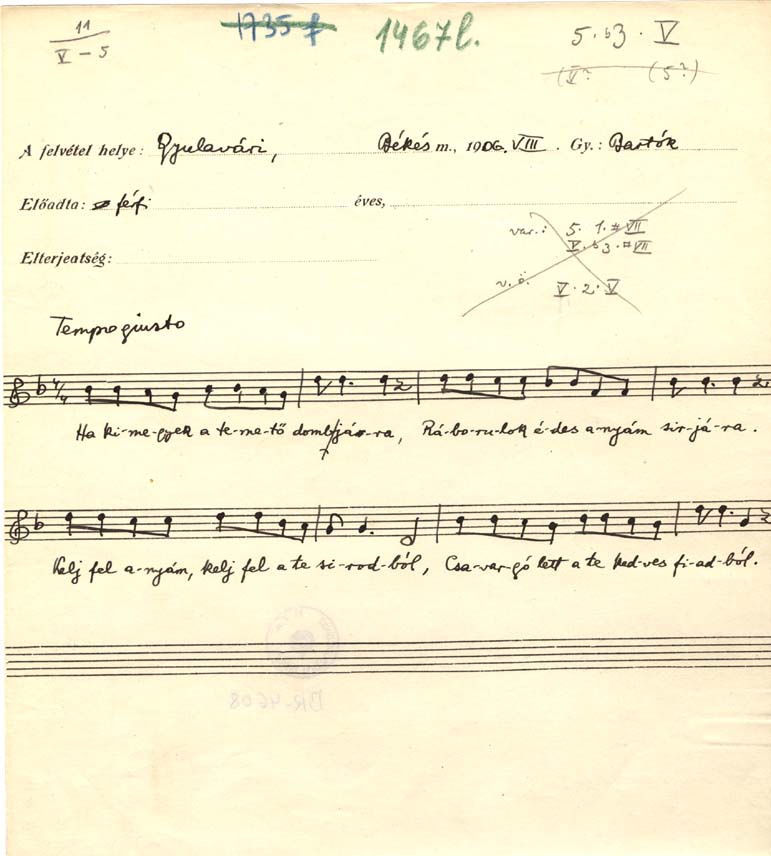 11
V - 5
1735 f
1467l.
5. b3. V
(V? (5?)
A felvétel helye: Gyulavári, Békés m., 1906. VIII. Gy.: Bartók
Előadta: férfi éves,
var.: 5. 1. #VII
V. b3. #VII
Elterjedtség:
v. ö. V. 2. V
Tempo giusto
Ha ki-me-gyek a te-me-tő domb-já-ra, Rá-bo-ru-lok é-des a-nyám sir-já-ra.
Kelj fel a-nyám, kelj fel a te si-rod-ból, Csa-var-gó lett a te ked-ves fi-ad-ból.
BR-4608